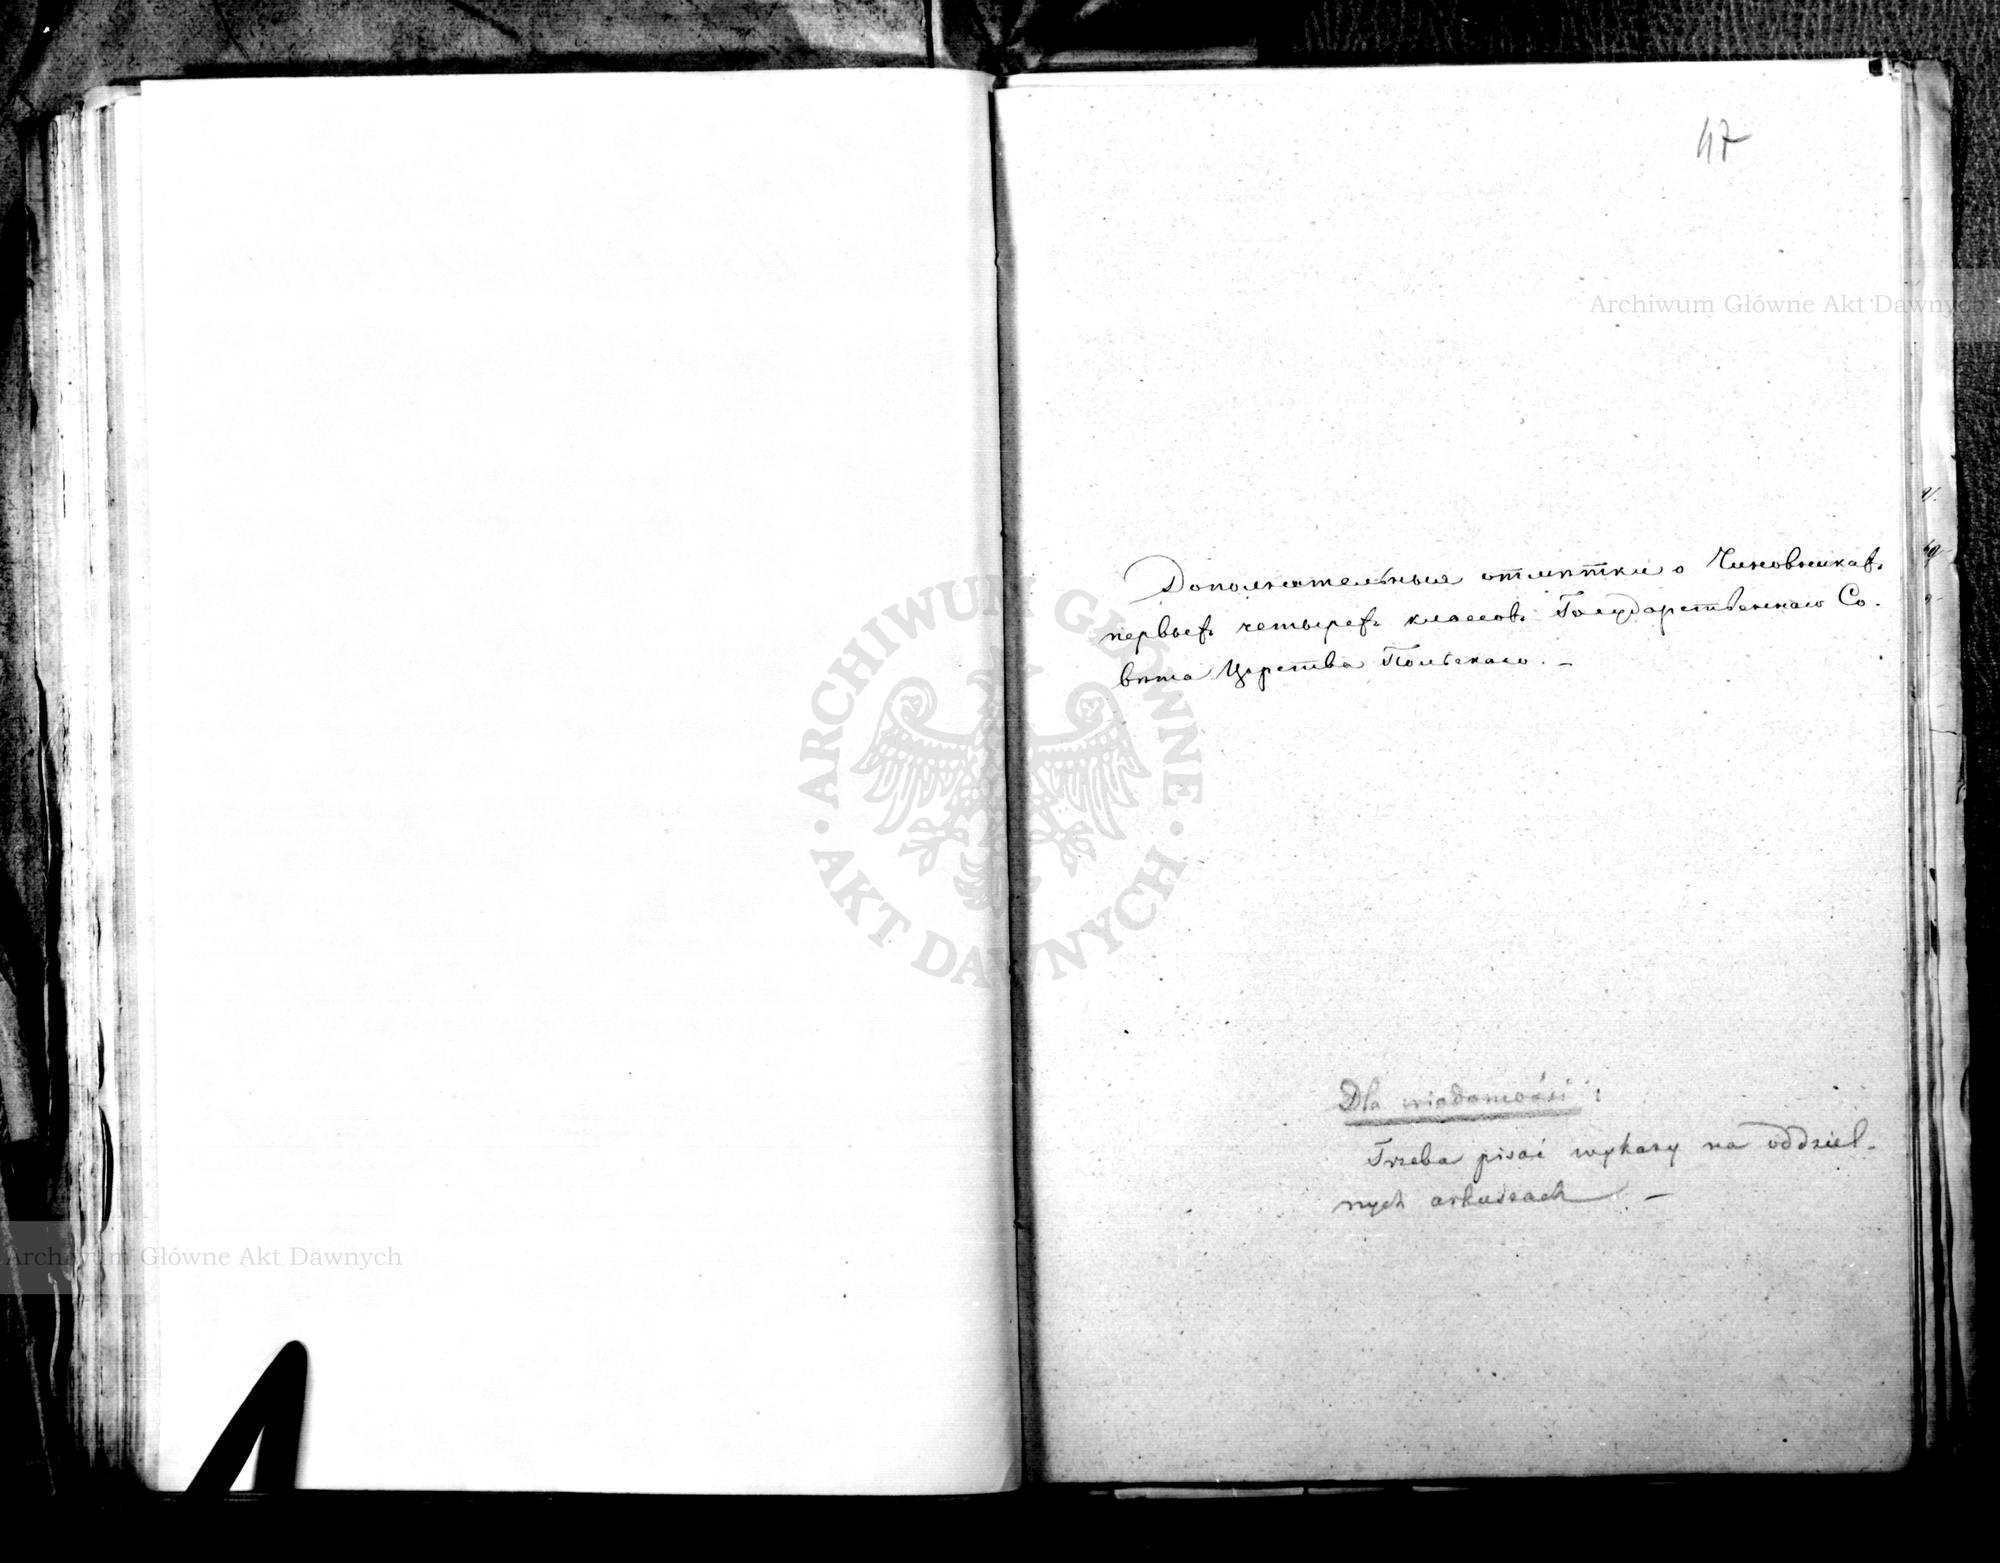 47
Дополнительныя отмѣтки о Чиновникахъ
первыхъ четырехъ классовъ Государственнаго Со-
вѣта Царства Польскаго. –
Dla wiadomości :
Trzeba pisać wykazy na oddziel-
nych arkuszach –
Archiwum Główne Akt Dawnych
ARCHIWUM GŁÓWNE AKT DAWNYCH
Archiwum Główne Akt Dawnych